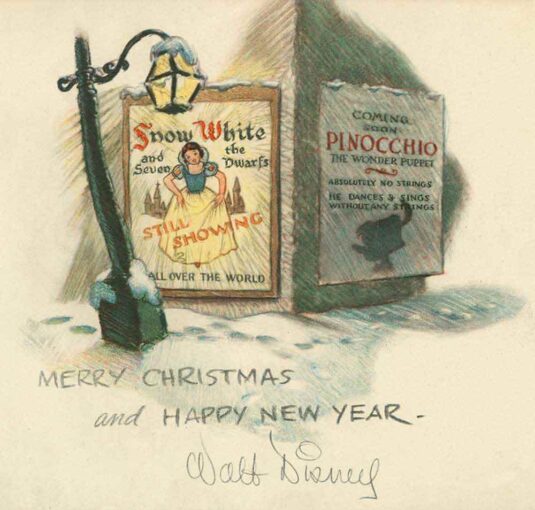 Snow White
and the
Seven Dwarfs
STILL
SHOWING
ALL OVER THE WORLD
COMING
SOON
PINOCCHIO
THE WONDER PUPPET
ABSOLUTELY NO STRINGS
HE DANCES & SINGS
WITHOUT ANY STRINGS
MERRY CHRISTMAS
and HAPPY NEW YEAR -
Walt Disney